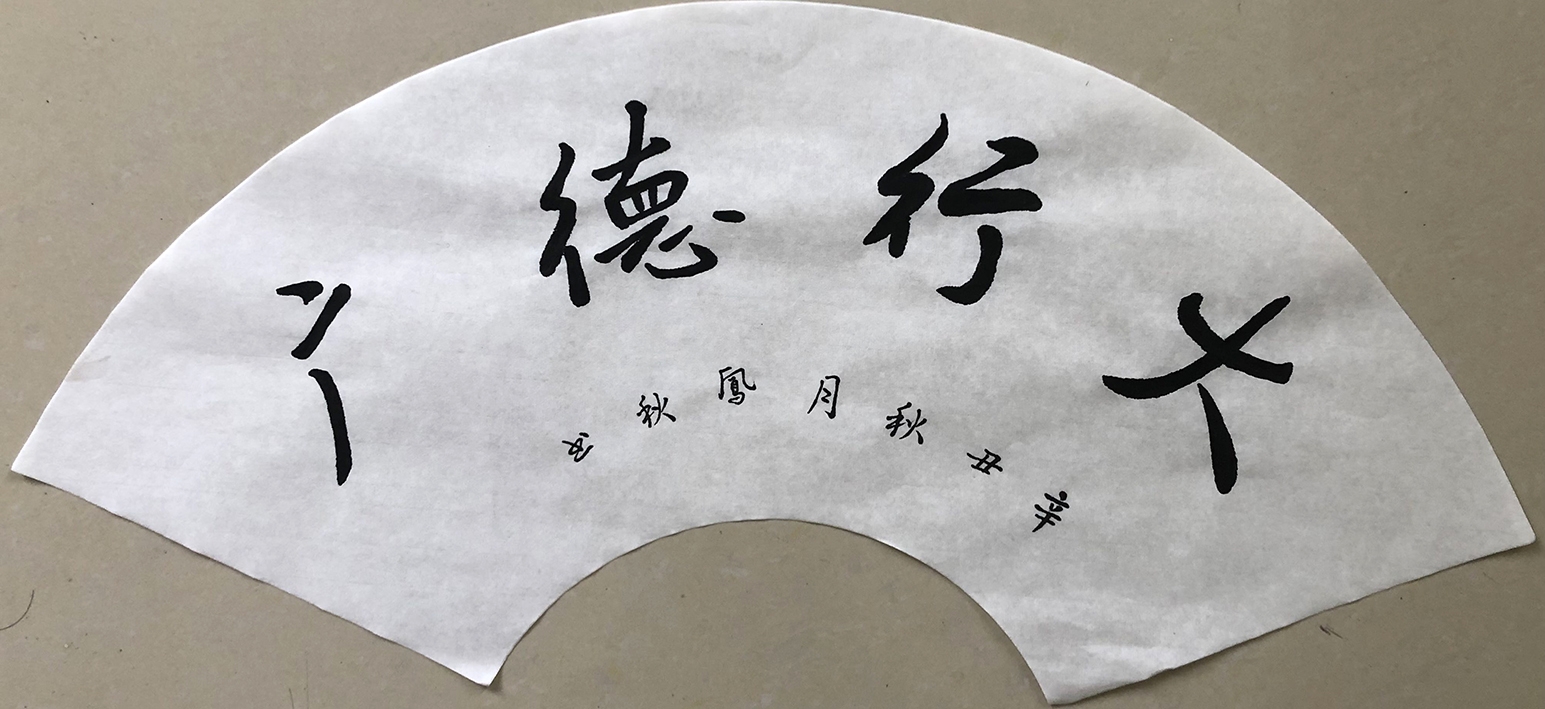 大行德广
辛丑秋月鳳秋书